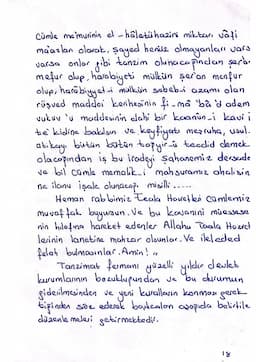 Cümle me'murinin el-hâletülhazini miktarı vâfi
maasları olarak, şayed henüz olmayanları vars
varsa onlar gibi tanzim olunacağından şer'a
menfur olup, harabiyeti mülkün şer'an menfur
olup, harâbiyyet-i mülkün sebeb-i azamı olan
rüşved maddei kerihesinin fi-mâ ba'd adem
vukuu'u maddesinin dahi bir kaanûn-i kavi i
te'kidine bakılsın ve keyfiyatı meşruha, usul.
atikayı bütün bütün tağyir-ü tecdid demek
olacağından iş bu iradeyi şahanemiz dersaade
ve bil cümle memalik-i mahsuramız ahalisin
ne ilanu işale olunacağı misilli .....
Heman rabbimiz Teala Hazretleri cümlemiz
muvaffak buyursun. Ve bu kavanini müessese
nin hilafına hareket edenler Allahu Teala Hazret
lerinin lanetine mazhar olsunlar. Ve ileleded
felat bulmasınlar. Amin! „
Tanzimat fermanı yüzelli yıldır devlet
kurumlarının bozulduğundan ve bu durumun
giderilmesinden ve yeni kuralların konması gerek
tiğinden söz ederek baştan aşağıda belirtile
düzenlemeleri getirmektedir.
18